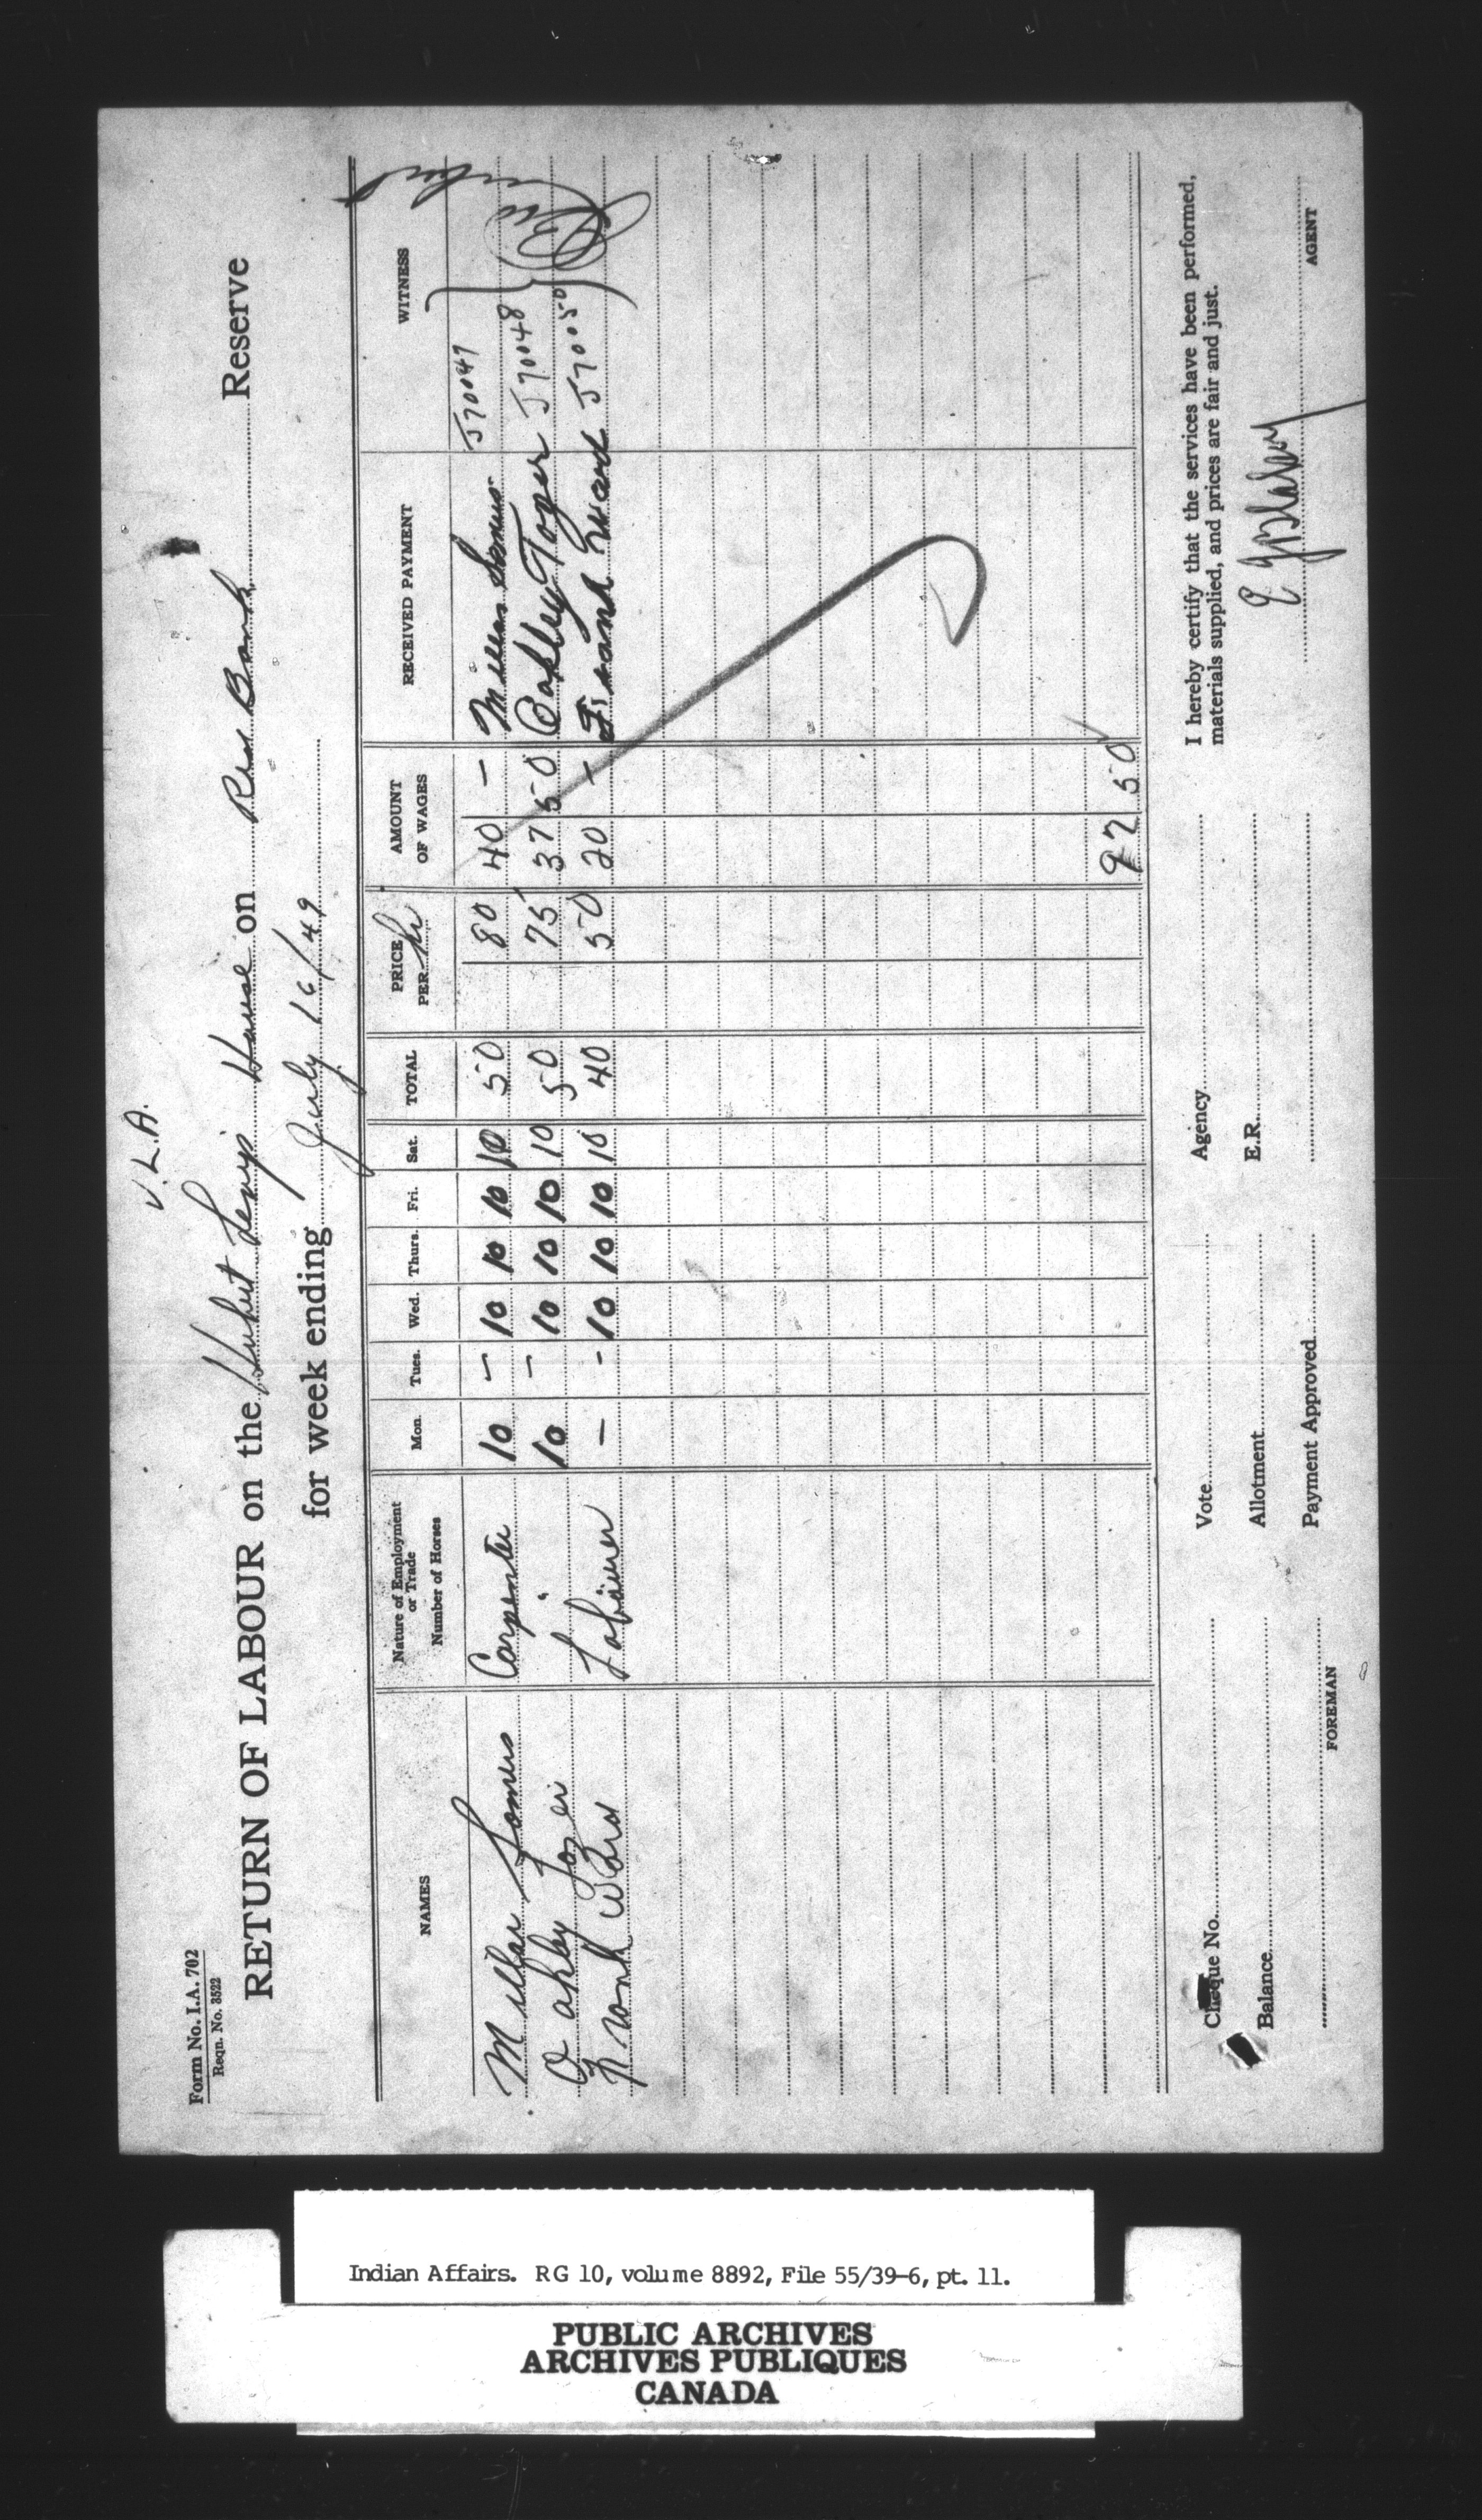 Form No. I.A. 702
Reqn. No. 3522
V.L.A.
RETURN OF LABOUR on the Hubert House on Red Bank Reserve
for week ending July 16/49
NAMES Nature of Employment or Trade Number of Horses Mon. Tues. Wed. Thurs. Fri. Sat. TOTAL PRICE PER hr AMOUNT OF WAGES RECEIVED PAYMENT WITNESS
Millar Somers Carpenter 10 – 10 10 10 10 50 80 40 – Millar Somers J70047
Oakley Tozer " 10 – 10 10 10 10 50 75 37 50 Oakley Tozer J70048
Frank Ward Labourer – – 10 10 10 10 40 50 20 – Frank Ward J70050
97 50
Cheque No. Vote Agency I hereby certify that the services have been performed,
materials supplied, and prices are fair and just.
Balance Allotment E.R.
Payment Approved
FOREMAN AGENT
Indian Affairs. RG 10, volume 8892, File 55/39-6, pt. 11.
PUBLIC ARCHIVES
ARCHIVES PUBLIQUES
CANADA